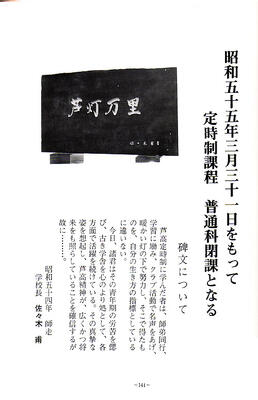 昭和五十五年三月三十一日をもって
定時制課程　普通科閉課となる
芦灯万里
碑文について
芦高定時制に学んだ者は、師弟同行、
学習に励み、クラブ活動で名声をあげ、
暖かい灯の下で努力し、そこで得たも
のを、自分の生き方の指標としている
に違いない。
今日、諸君はその青年期の労苦を偲
び、古き学舎を心のより処として、各
方面で活躍を続けている。その真摯な
姿を想起し、芦高精神が、広くかつ将
来をも照らしていることを確信するが
故に………。
昭和五十四年　師走
学校長　佐々木　甫
~141~